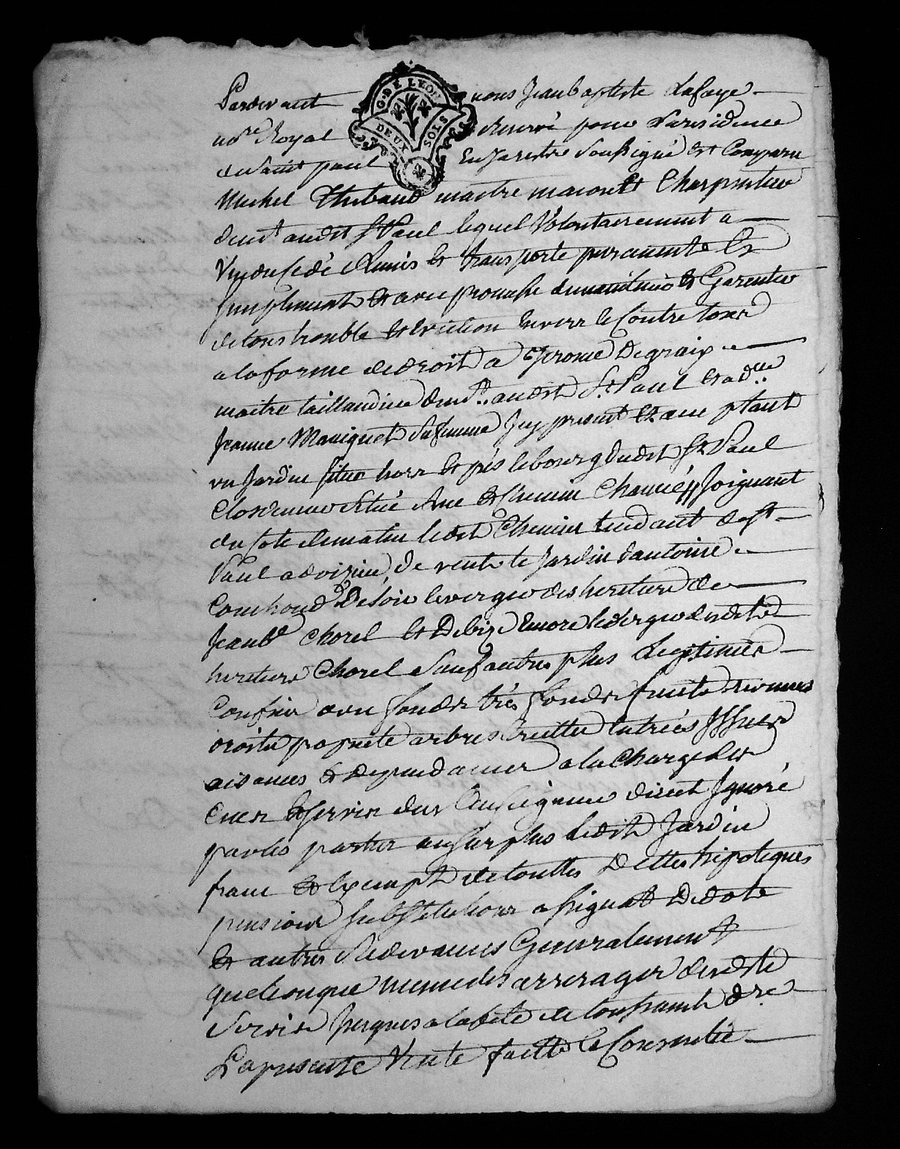 Pardevant nous Jean baptiste Lafaye
no.re Royal reservé pour la residence
de saint paul En Jarestre soussigné est Comparu
Michel Thibaud maitre macon et Charpentier
dem.t audit S.t Paul lequel Volontairement a
Vendu cedé remis et transporté purement et
simplement et avec promesse de maintenir et Garentir
de tous trouble et eviction envers et Contre tous
a la forme de droit a Jerome Degraix
maitre taillandier dem.t audit S.t Paul et a d.lle
Jeanne Maniquet sa femme Icy present et acceptant
un Jardin situé hors et prés le bourg dudit S.t Paul
Clos de mur Joignant
du coté de matin ledit Chemin tendant de S.t
Paul a de vent le Jardin d'antoine
De soir le verger des heritiers de
Jean Chorel et De bize encore le verger desdits
heritiers Chorel sauf autres plus legitimes
Confins avec fonds trés fonds fruits revenus
droits proprieté arbres entrées Issues
aisances et dependances a la Charge des
Cens et servis dus au seigneur direct Ignoré
par les parties au surplus ledit Jardin
franc et Exempt de touttes Dettes hipoteques
pensions substitutions Dedote
et autres Redevances Generalement
quelconque meme des arrerages desdits
servis Jusques a la fete de toussaint d.re
La presente Vente faitte et Consentie